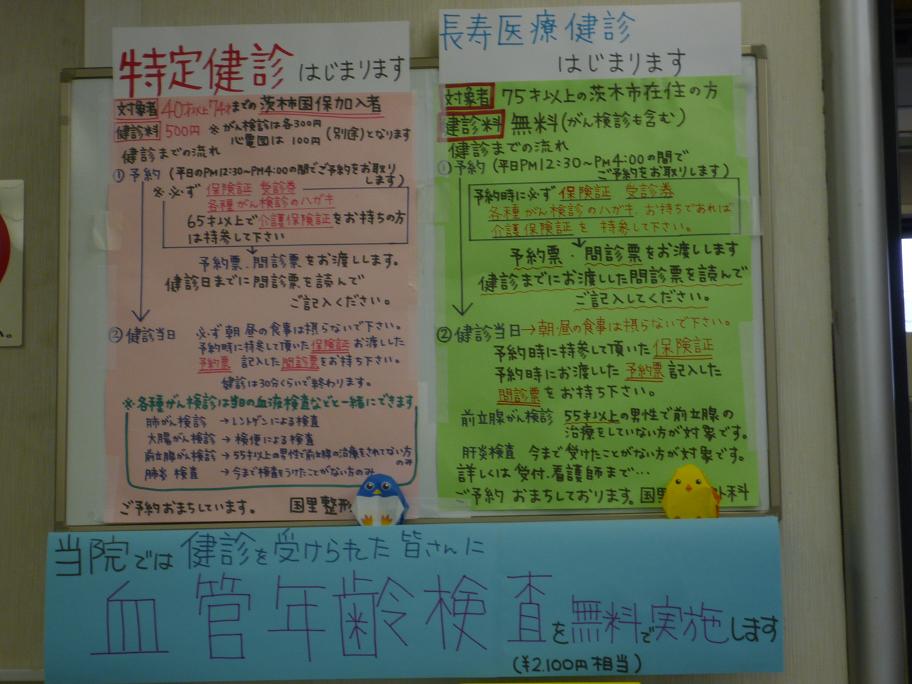 特定健診 はじまります
対象者 40才以上74才までの茨木市国保加入者
健診料 500円 ※がん検診は各300円
心電図は100円(別途)となります
健診までの流れ
①予約 (平日のPM12:30〜PM4:00の間でご予約をお取り
します)
※必ず 保険証 受診券
各種がん検診のハガキ
65才以上で介護保険証をお持ちの方
は持参して下さい
予約票・問診票をお渡しします。
健診日までに問診票を読んで
ご記入ください。
②健診当日 必ず朝・昼の食事は摂らないで下さい。
予約時に持参して頂いた保険証 お渡しした
予約票 記入した問診票をお持ち下さい。
健診は30分くらいで終わります。
※各種がん検診は当日の血液検査などと一緒にできます
肺がん検診 → レントゲンによる検査
大腸がん検診 → 検便による検査
前立腺がん検診 → 55才以上の男性で前立腺の治療をされてない方
のみ
肺炎 検査 → 今まで検査をうけたことがない方のみ
ご予約おまちしています。 国里整形
長寿医療健診
はじまります
対象者 75才以上の茨木市在住の方
健診料 無料(がん検診も含む)
健診までの流れ
①予約 (平日PM12:30〜PM4:00の間で
ご予約をお取りします)
予約時に必ず 保険証 受診券
各種がん検診のハガキ お持ちであれば
介護保険証を 持参して下さい。
予約票・問診票をお渡しします
健診までにお渡しした問診票を読んで
ご記入してください。
②健診当日→朝・昼の食事は摂らないで下さい。
予約時に持参して頂いた 保険証
予約時にお渡しした 予約票 記入した
問診票をお持ち下さい。
前立腺がん検診 55才以上の男性で前立腺の
治療をしていない方が対象です。
肝炎検査 今まで受けたことがない方が対象です。
詳しくは受付、看護師まで…
ご予約 おまちしております。国里 科
当院では健診を受けられた皆さんに
血管年齢検査を無料で実施します
(¥2,100円相当)